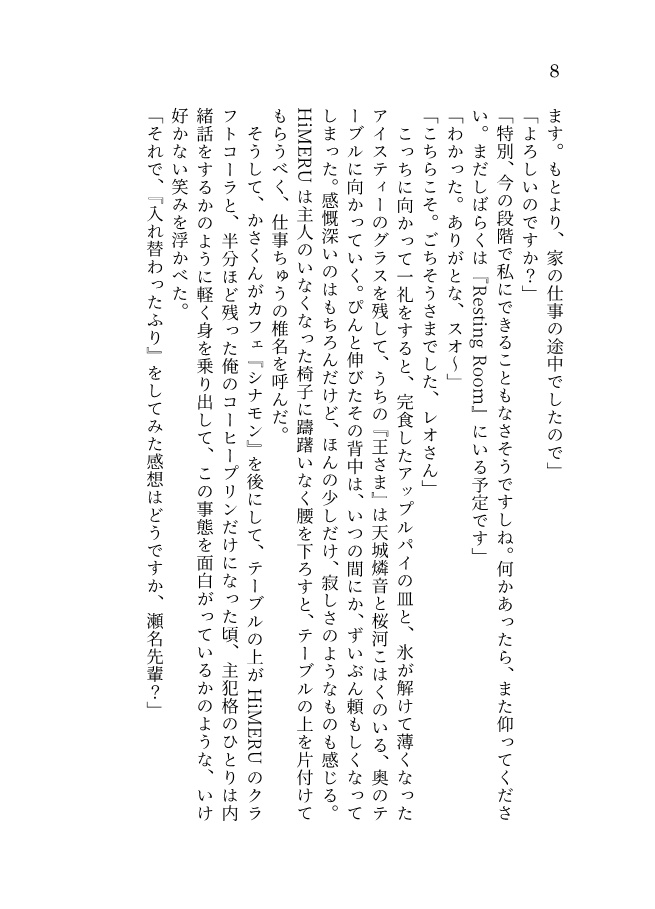 8
ます。もとより、家の仕事の途中でしたので」
「よろしいのですか？」
「特別、今の段階で私にできることもなさそうですしね。何かあったら、また仰ってくださ
い。まだしばらくは『Resting Room』にいる予定です」
「わかった。ありがとな、スオ～」
「こちらこそ。ごちそうさまでした、レオさん」
　こっちに向かって一礼をすると、完食したアップルパイの皿と、氷が解けて薄くなった
アイスティーのグラスを残して、うちの『王さま』は天城燐音と桜河こはくのいる、奥のテ
ーブルに向かっていく。ぴんと伸びたその背中は、いつの間にか、ずいぶん頼もしくなって
しまった。感慨深いのはもちろんだけど、ほんの少しだけ、寂しさのようなものも感じる。
HiMERU は主人のいなくなった椅子に躊躇いなく腰を下ろすと、テーブルの上を片付けて
もらうべく、仕事ちゅうの椎名を呼んだ。
　そうして、かさくんがカフェ『シナモン』を後にして、テーブルの上が HiMERU のクラ
フトコーラと、半分ほど残った俺のコーヒープリンだけになった頃、主犯格のひとりは内
緒話をするかのように軽く身を乗り出して、この事態を面白がっているかのような、いけ
好かない笑みを浮かべた。
「それで、『入れ替わったふり』をしてみた感想はどうですか、瀬名先輩？」